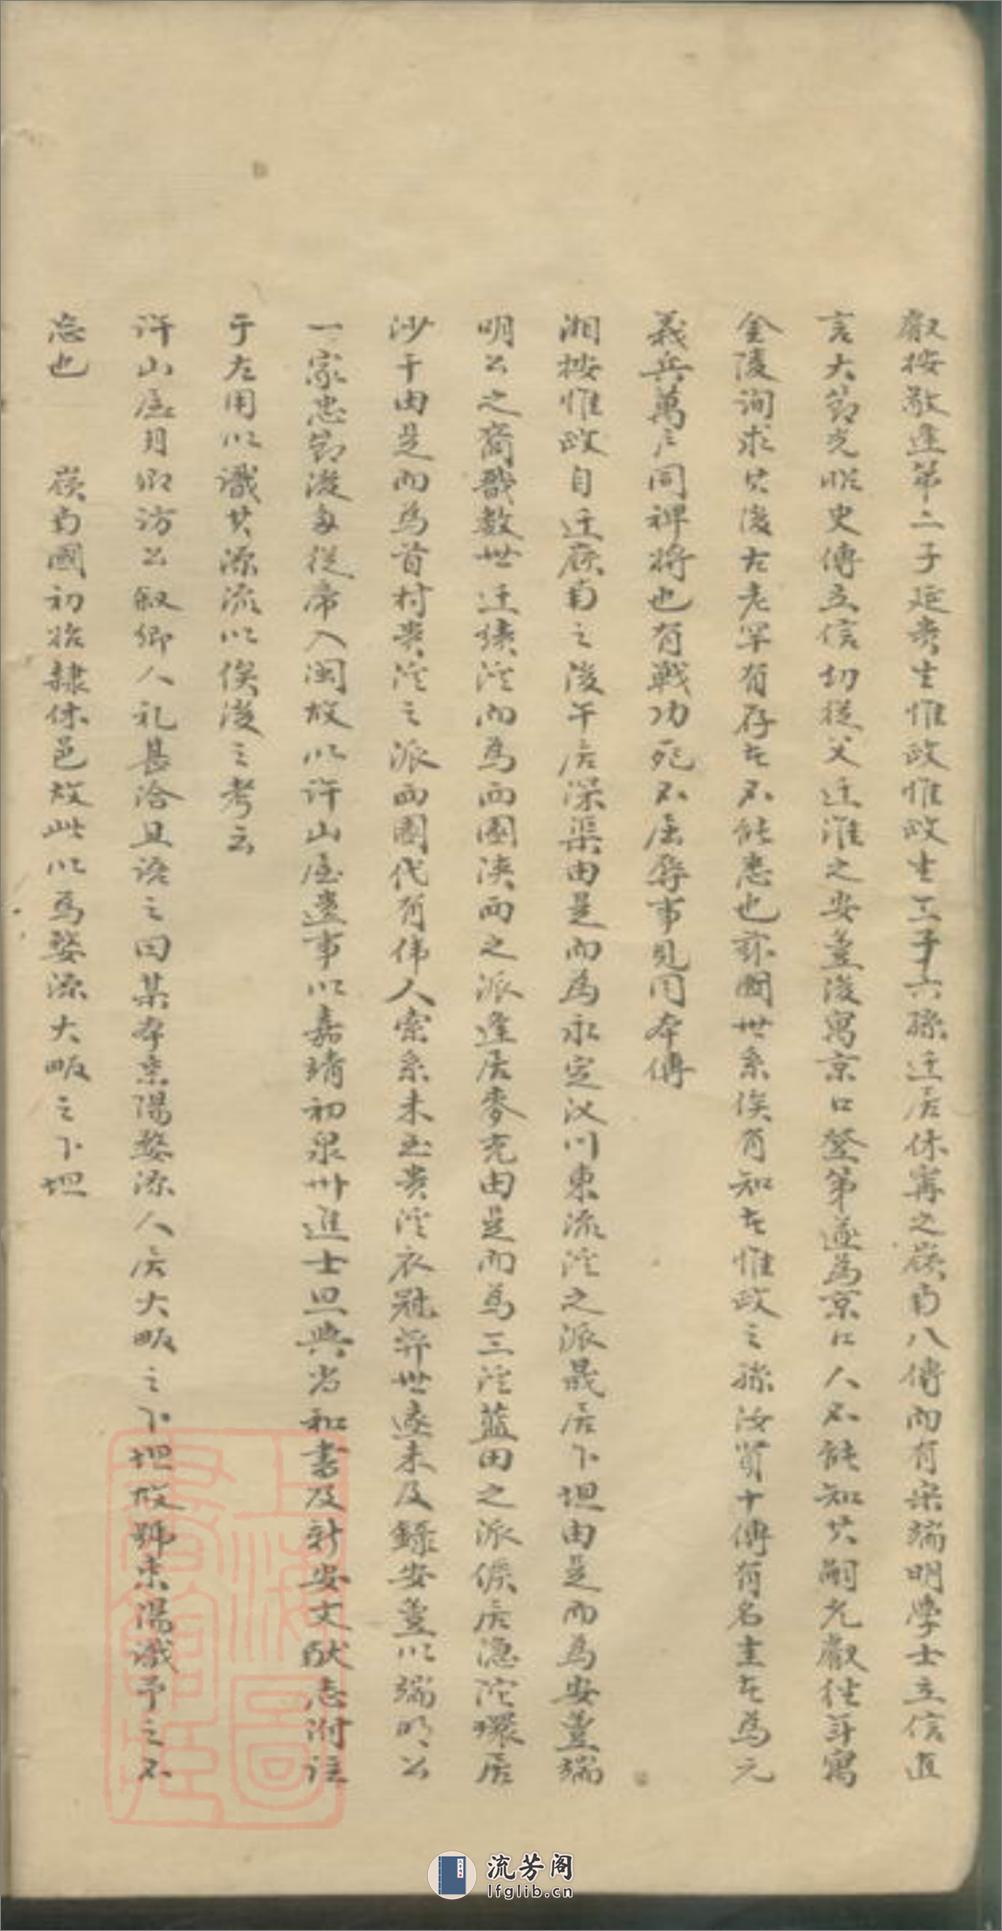 叡按敬逵第二子延貴生惟政惟政生三子六孫迁居休寧之嶺南八傳而有宋端明學士立信直
言大節光昭史傳立信切從父迁淮之安豐後寓京口登第遂為京口人不能知其嗣允叡往年寓
金陵詢求其後古老罕有存者不能悉也茲圖世系俟有知者惟政之孫汝賢十傳有名圭者為元
義兵萬戶同裨將也有戰功死不屈辱事見同本傳
湘按惟政自迁嶺南之後午居深渠由是而為永定汊川東流沱之派晟居下坦由是而為安豐端
明公之裔戬数世迁璜沱而為西園洪西之派逢居麥充由是而為三沱藍田之派儼居隐沱環居
沙干由是而為首村贵沱之派西園代有偉人索系未至贵沱衣冠弈世遠未及錄安豐以端明公
一家忠節後多從帝入闽故以許山屋遺事以嘉靖初泉州進士旦與尚和書及新安文献志附註
于左用以識其源流以俟後之考云
許山屋月卿訪公叙鄉人礼甚洽且語之曰某本東陽婺源人居大畈之下坦故號東陽識予之不
忘也　嶺南國初始隸休邑故此以為婺源大畈之下坦
上海圖書館藏
流芳阁
lfglib.cn